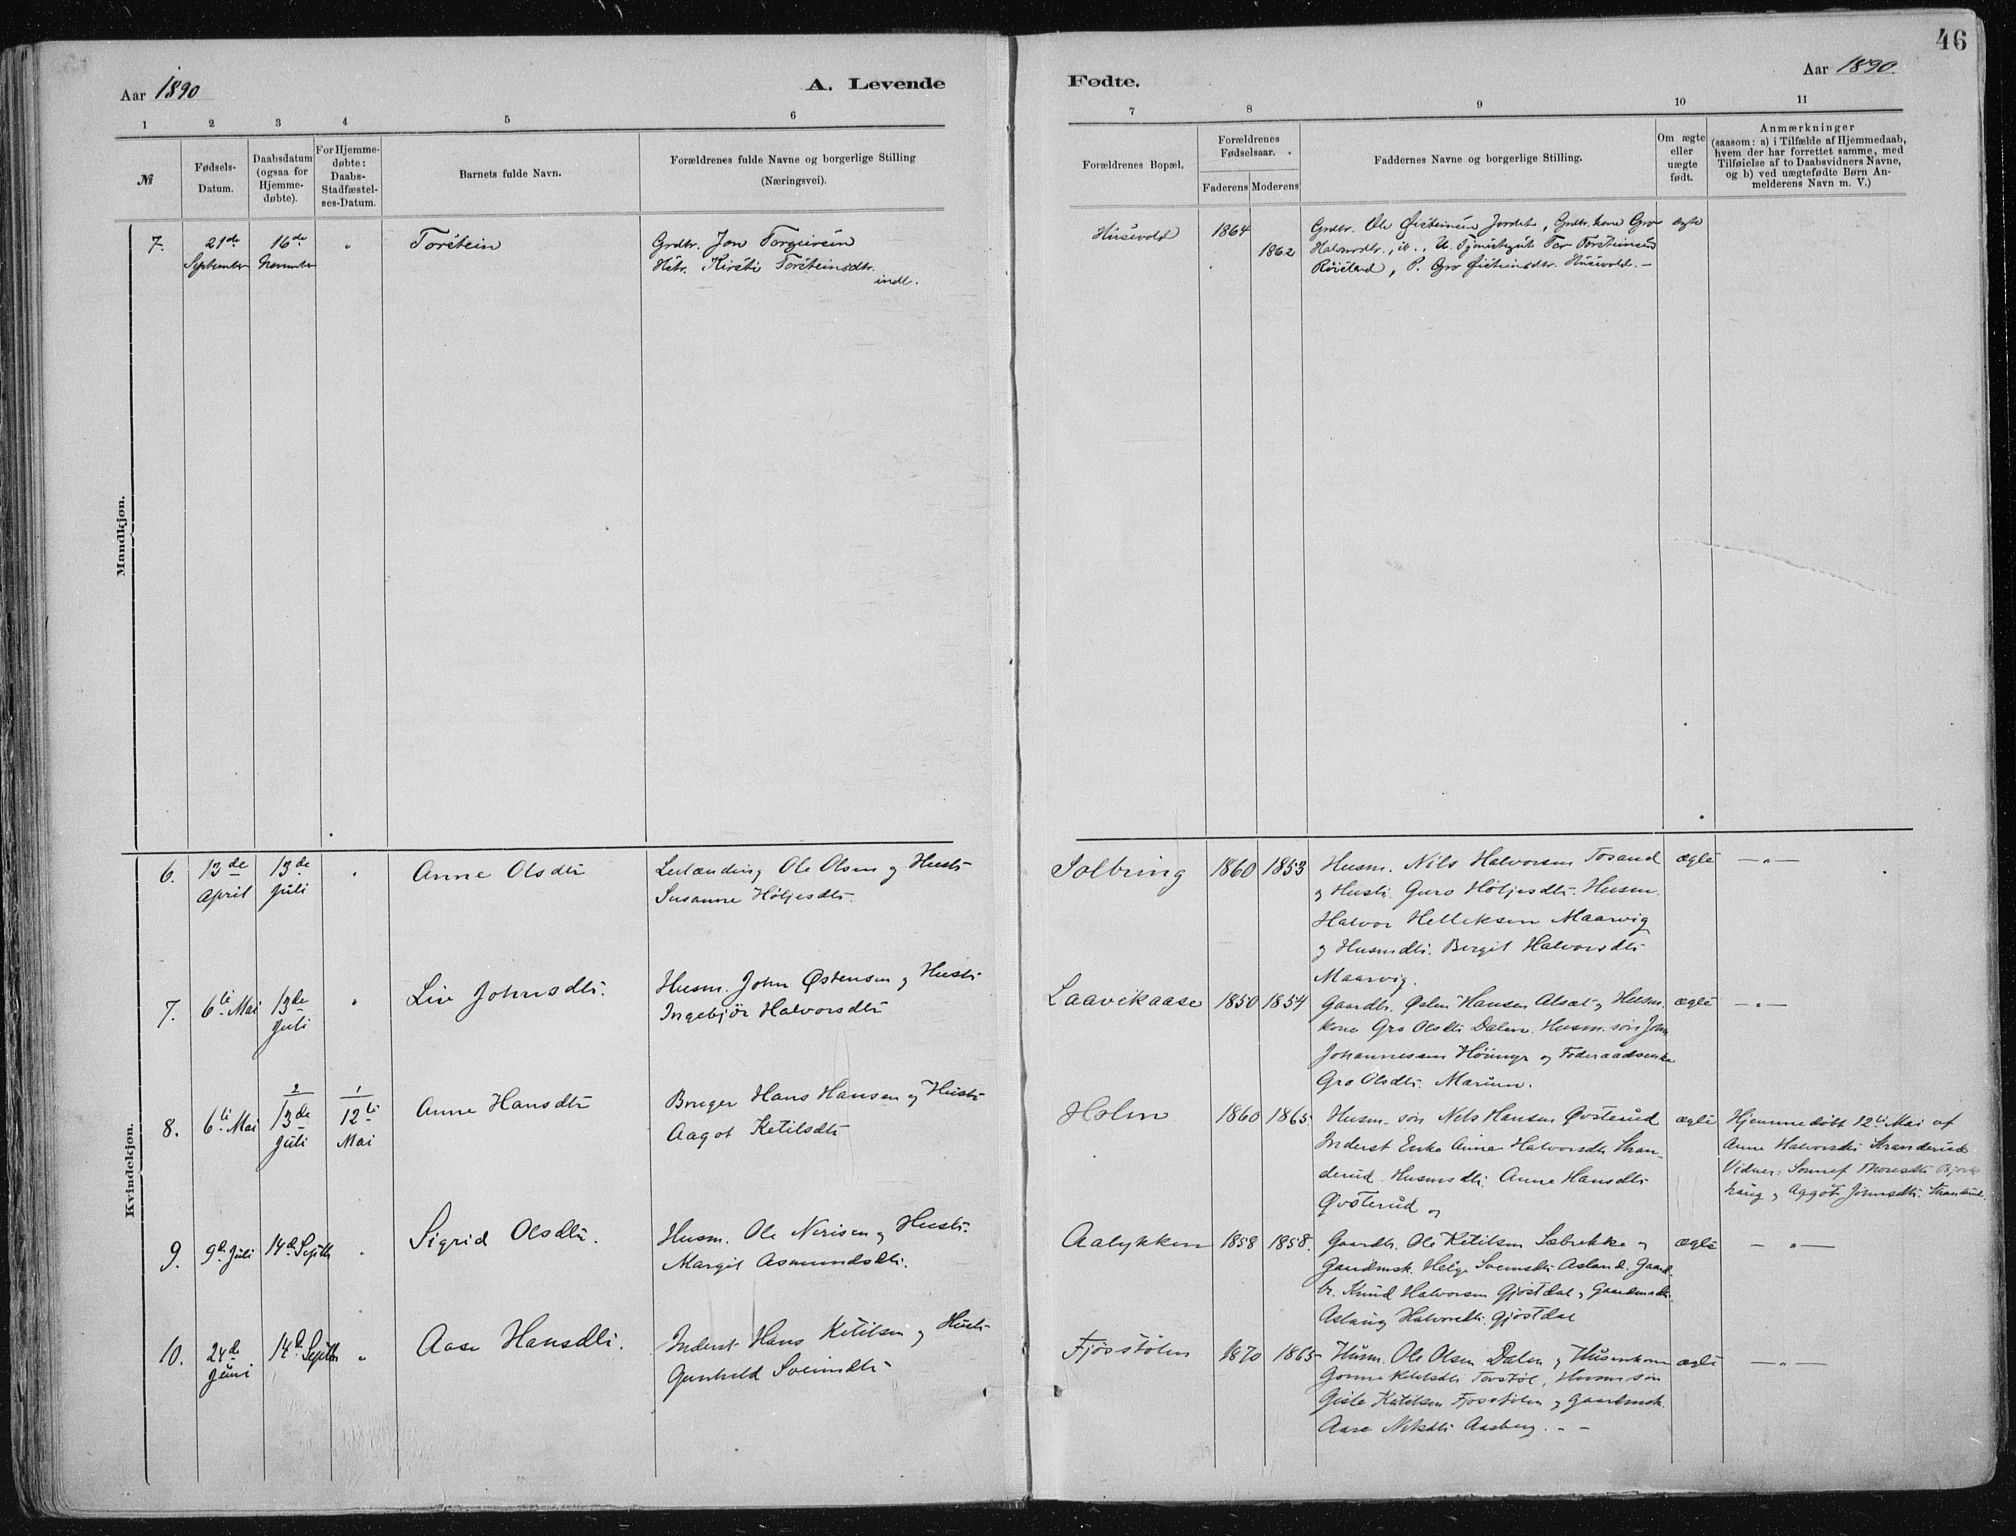 46
Aar 1890
A. Levende
Fødte.
Aar 1890.
1 2 3 4 5 6 7 8 9 10 11
№
Fødsels-
Datum.
Daabsdatum
(ogsaa for
Hjemme-
døbte).
For Hjemme-
døbte:
Daabs-
Stadfæstel-
ses-Datum.
Barnets fulde Navn.
Forældrenes fulde Navne og borgerlige Stilling
(Næringsvei).
Forældrenes Bopæl.
Forældrenes
Fødselsaar.
Faderens Moderens
Faddernes Navne og borgerlige Stilling.
Om ægte
eller
uægte
født.
Anmærkninger
(saasom: a) i Tilfælde af Hjemmedaab,
hvem der har forrettet samme, med
Tilføielse af to Daabsvidners Navne,
og b) ved uægtefødte Børn An-
melderens Navn m. V.)
Mandkjøn.
7. 21de September
16de November
"
Torstein
Grdbr. Jon Torgersen
Hstr. Kirsti Torsteinsdtr.
indl.
Husevold
1864
1862
Grdbr. Ole Østeinsen Jordet, Grdbr. kone Gro
Halvorsdtr., ib., U. Tjenestegut Tor Torsteinsen
Røisland, P. Gro Østeinsdtr. Husevold. -
ægte
Kvindekjøn.
6. 13de April
13de Juli
"
Anne Olsdtr
Leilænding Ole Olsen og Hustr
Susanne Høljesdtr.
Solbring
1860 1853
Husm. Nils Halvorsen Tosand
og Hustr. Guro Høljesdtr. Husm.
Halvor Helleksen Maarvig
og Husmdtr. Bergit Halvorsdtr
Maarvig.
ægte
—"—
7. 6te Mai
13de Juli
"
Liv Johnsdtr.
Husm. John Østensen og Hustr
Ingebjør Halvorsdtr
Laavikaase
1850 1854
Gaardbr. Østen Hansen Alsæt og Husm.
kone Gro Olsdtr Dalen. Husm. søn John
Johannessen og Føderaadsenke
Gro Olsdtr.
ægte
—"—
8. 6te Mai
2 13de Juli
1 12te Mai
Anne Hansdtr
Bruger Hans Hansen og Hustr
Aagot Ketilsdtr
Holm
1860 1865
Husm. søn Nels Hansen Øvsterud
Inderst Enke Anne Halvorsdtr Stran-
derud. Husmsdtr. Anne Hansdtr
Øvsterud og
ægte
Hjemmedøbt 12te Mai af
Anne Halvorsdtr Stranderud
Vidner: Sønnef Thorsdtr Bjørk
haug og Aggot Johnsdtr. Stranderud.
9. 9de Juli
14de Septbr
"
Sigrid Olsdtr.
Husm. Ole Nerisen og Hustr.
Margit Asmundsdtr.
Aalykken
1858 1858.
Gaardbr. Ole Ketilsen Sæbrekke og
Gaardmsk. Helge Svensdtr Asland. Gaard-
br. Knud Halvorsen Gjøstdal og Gaardmsdtr.
Aslaug Halvorsdtr. Gjøstdal
ægte
—"—
10. 24de Juni
14de Septbr
"
Aase Hansdtr.
Inderst Hans Ketilsen og Hustr
Gunhild Svensdtr
Fjøsstølen
1870 1865
Husm. Ole Olsen Dalen og Husmkone
Gonne Kittilsdtr Torstøl, Husms søn
Gisle Kittilsen Fjøsstølen og Gaardmsk.
Aase Nilsdtr Aasberg. - -
ægte
—"—